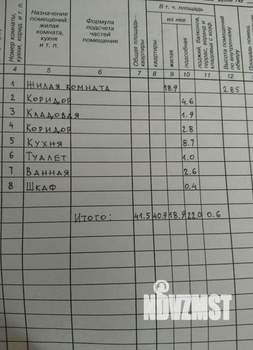 Номер комнаты, кухни, корид. и т. п.
Назначение помещений: жилая комната, кухня и т. п.
Формула подсчета частей помещения
Общая площадь квартиры
В т. ч. площадь
квартиры
из нее
жилая
подсобная
лоджий, балконов,
Высота помещений по внутреннему обмеру
4 5 6 7 8 9 10 11 12
1 Жилая комната 18.9 2.85
2 Коридор 4.6
3 Кладовая 1.9
4 Коридор 2.8
5 Кухня 8.7
6 Туалет 1.0
7 Ванная 2.6
8 Шкаф 0.4
Итого: 41.5 40.9 18.9 22.0 0.6
NDVZMST